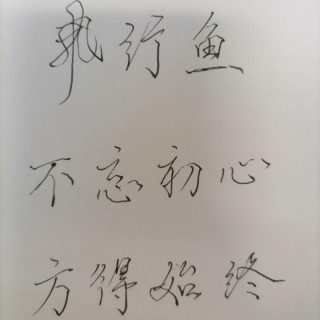 执行鱼
不忘初心
方得始终